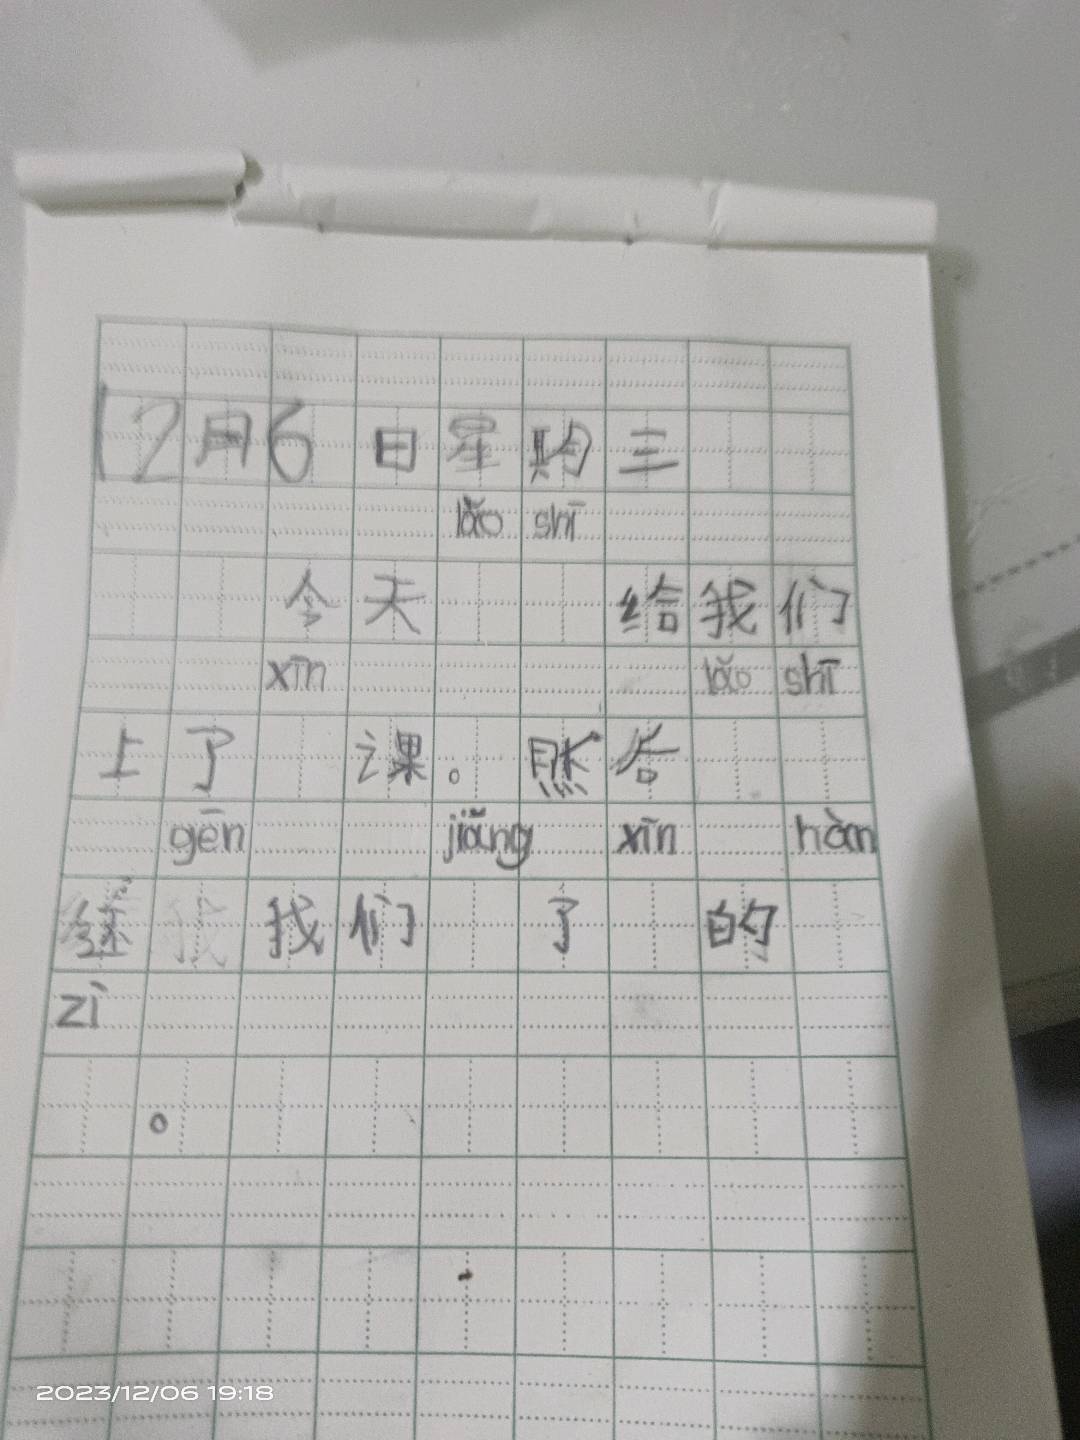 12月6日星期三
lǎo shī
今天给我们
xīn lǎo shī
上了课。然后
gēn jiǎng xīn hàn
我们了的
zì
。
2023/12/06 19:18